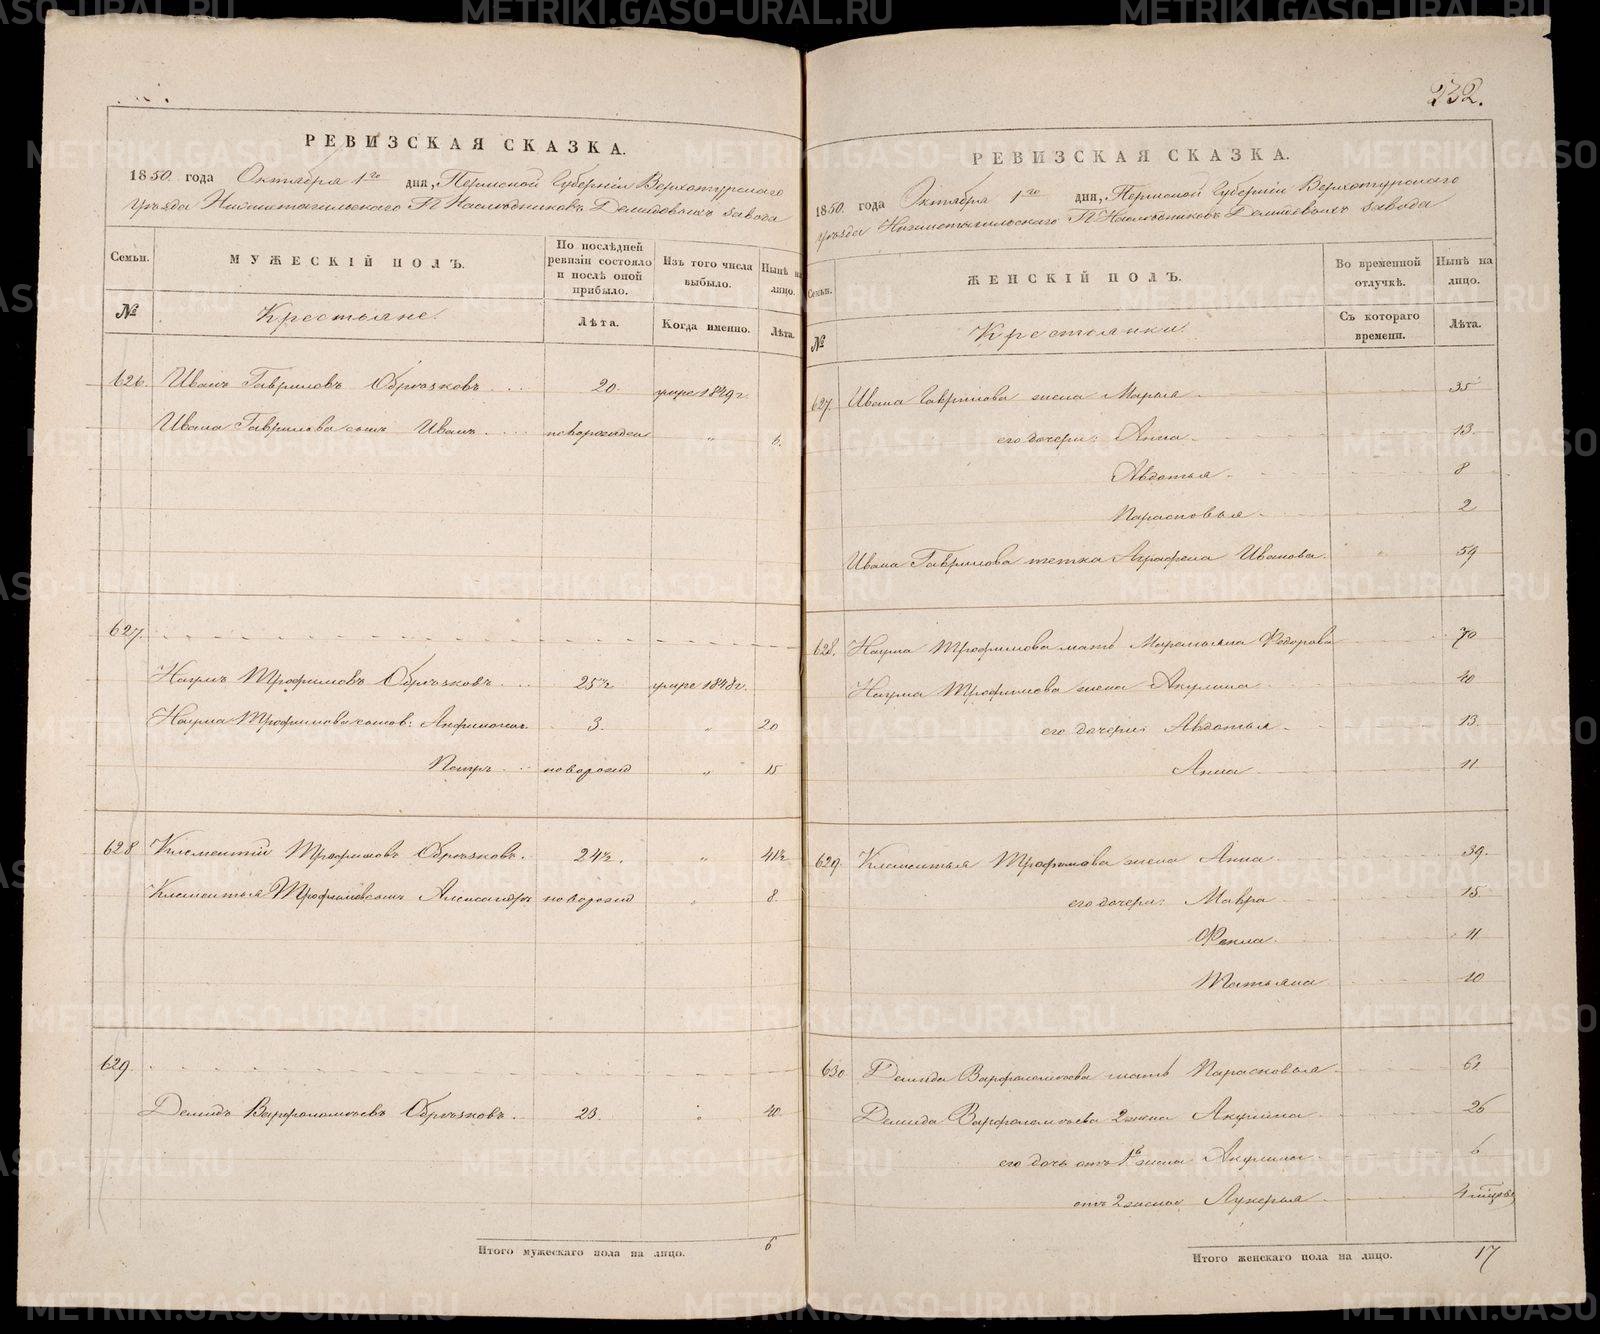 РЕВИЗСКАЯ СКАЗКА.
1850 года Октября 1го дня, Пермской Губерніи Верхотурскаго
уѣзда Нижнетагильскаго Г.г. Наслѣдниковъ Демидовыхъ завода
Семьи.
МУЖЕСКІЙ ПОЛЪ.
По послѣдней ревизіи состояло и послѣ оной прибыло.
Изъ того числа выбыло.
Нынѣ на лицо.
№
Крестьяне.
Лѣта.
Когда именно.
Лѣта.
626. Иванъ Гавриловъ Обрѣзковъ 20. умре 1849 г.
Ивана Гаврилова сынъ Иванъ новорожден " 6.
627.
Наумъ Трофимовъ Обрѣзковъ 25½ умре 1848 г.
Наума Трофимова сыновья: Анфиногенъ 3. " 20
Петръ новорожд " 15
628 Клементій Трофимовъ Обрѣзковъ. 24½. " 41½
Клементья Трофимова сынъ Александръ новорожд " 8.
629.
Демидъ Варфоломѣевъ Обрѣзковъ. 23. " 40
Итого мужескаго пола на лицо. 6
232.
РЕВИЗСКАЯ СКАЗКА.
1850 года Октября 1го дня, Пермской Губерніи Верхотурскаго
уѣзда Нижнетагильскаго Г.г. Наслѣдниковъ Демидовыхъ завода
Семьи.
ЖЕНСКІЙ ПОЛЪ.
Во временной отлучкѣ.
Нынѣ на лицо.
№
Крестьянки.
Съ котораго времени.
Лѣта.
627. Ивана Гаврилова жена Марья 35
его дочери: Анна 13.
Авдотья 8
Парасковья 2
Ивана Гаврилова тетка Аграфена Иванова. 59
628. Наума Трофимова мать Маремьяна Федорова 70
Наума Трофимова жена Акулина 40
его дочери: Авдотья 13.
Анна 11
629. Клементья Трофимова жена Анна 39.
его дочери: Мавра 15.
Фекла 11
Татьяна 10
630 Демида Варфоломѣева мать Парасковья 61
Демида Варфоломѣева 2 жена Акулина 26
его дочь отъ 1й жены 6
отъ 2 жены Лукерья 4
Итого женскаго пола на лицо. 17
METRIKI.GASO-URAL.RU